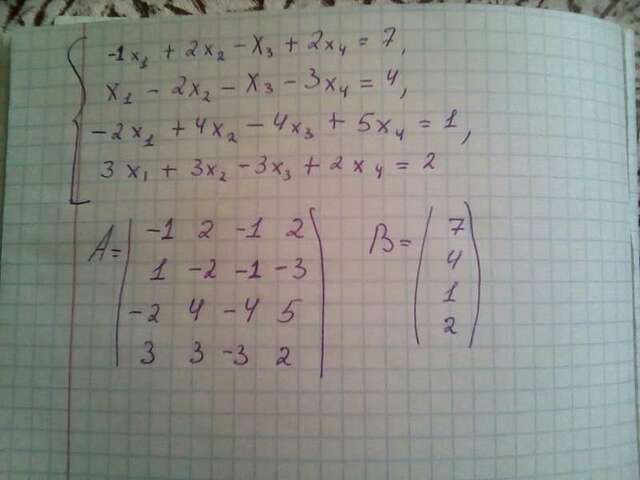 -1x₁ + 2x₂ - x₃ + 2x₄ = 7,
x₁ - 2x₂ - x₃ - 3x₄ = 4,
-2x₁ + 4x₂ - 4x₃ + 5x₄ = 1,
3x₁ + 3x₂ - 3x₃ + 2x₄ = 2
-1 2 -1 2 7
A= 1 -2 -1 -3 B= 4
-2 4 -4 5 1
3 3 -3 2 2